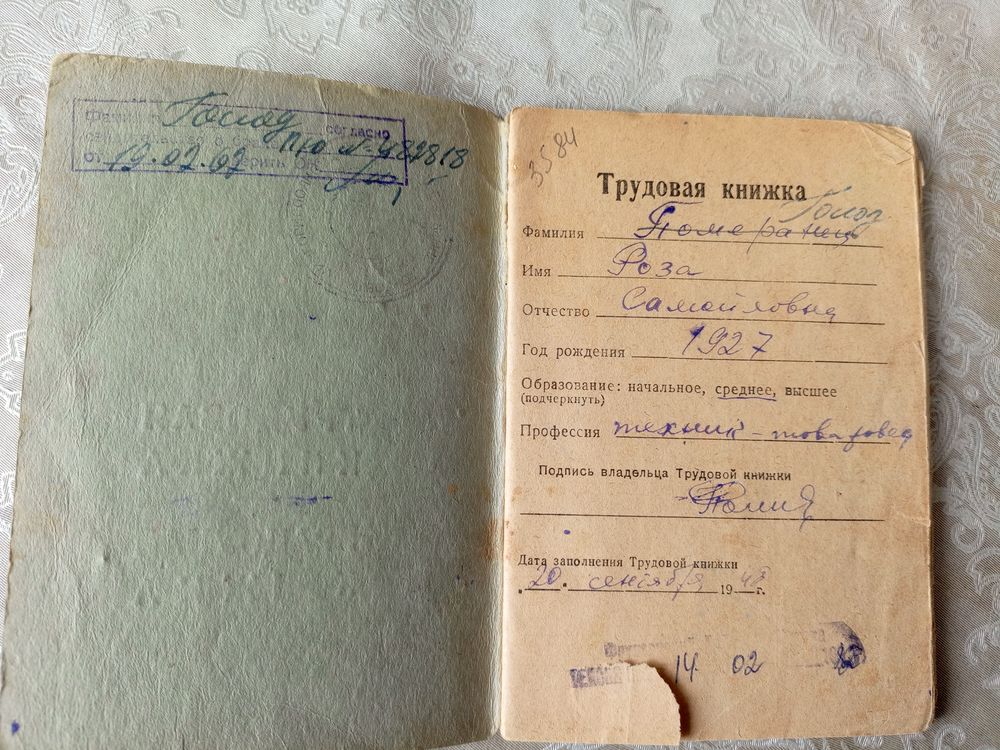 Голод согласно
п/о №
19.02.
3584
Трудовая книжка
Голод
Фамилия Померанец
Имя Роза
Отчество Самойловна
Год рождения 1927
Образование: начальное, среднее, высшее
(подчеркнуть)
Профессия техник - товаровед
Подпись владельца Трудовой книжки
Дата заполнения Трудовой книжки
20. сентября 1948 г.
14 02